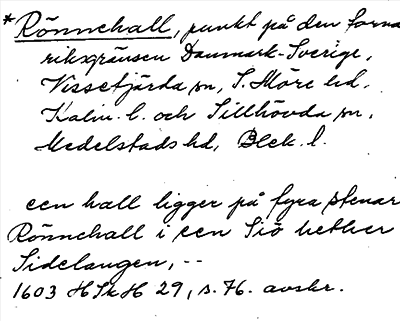 *Rönnehall, punkt på den forna
riksgränsen Danmark-Sverige,
Vissefjärda sn, S. Möre hd,
Kalm. l. och Sillhövda sn,
Medelstads hd, Blek. l.
een hall ligger på fyra stenar
Rönnehall i een Siö hether
Sidelangen, --
1603 HSkH 29, s. 76. avskr.